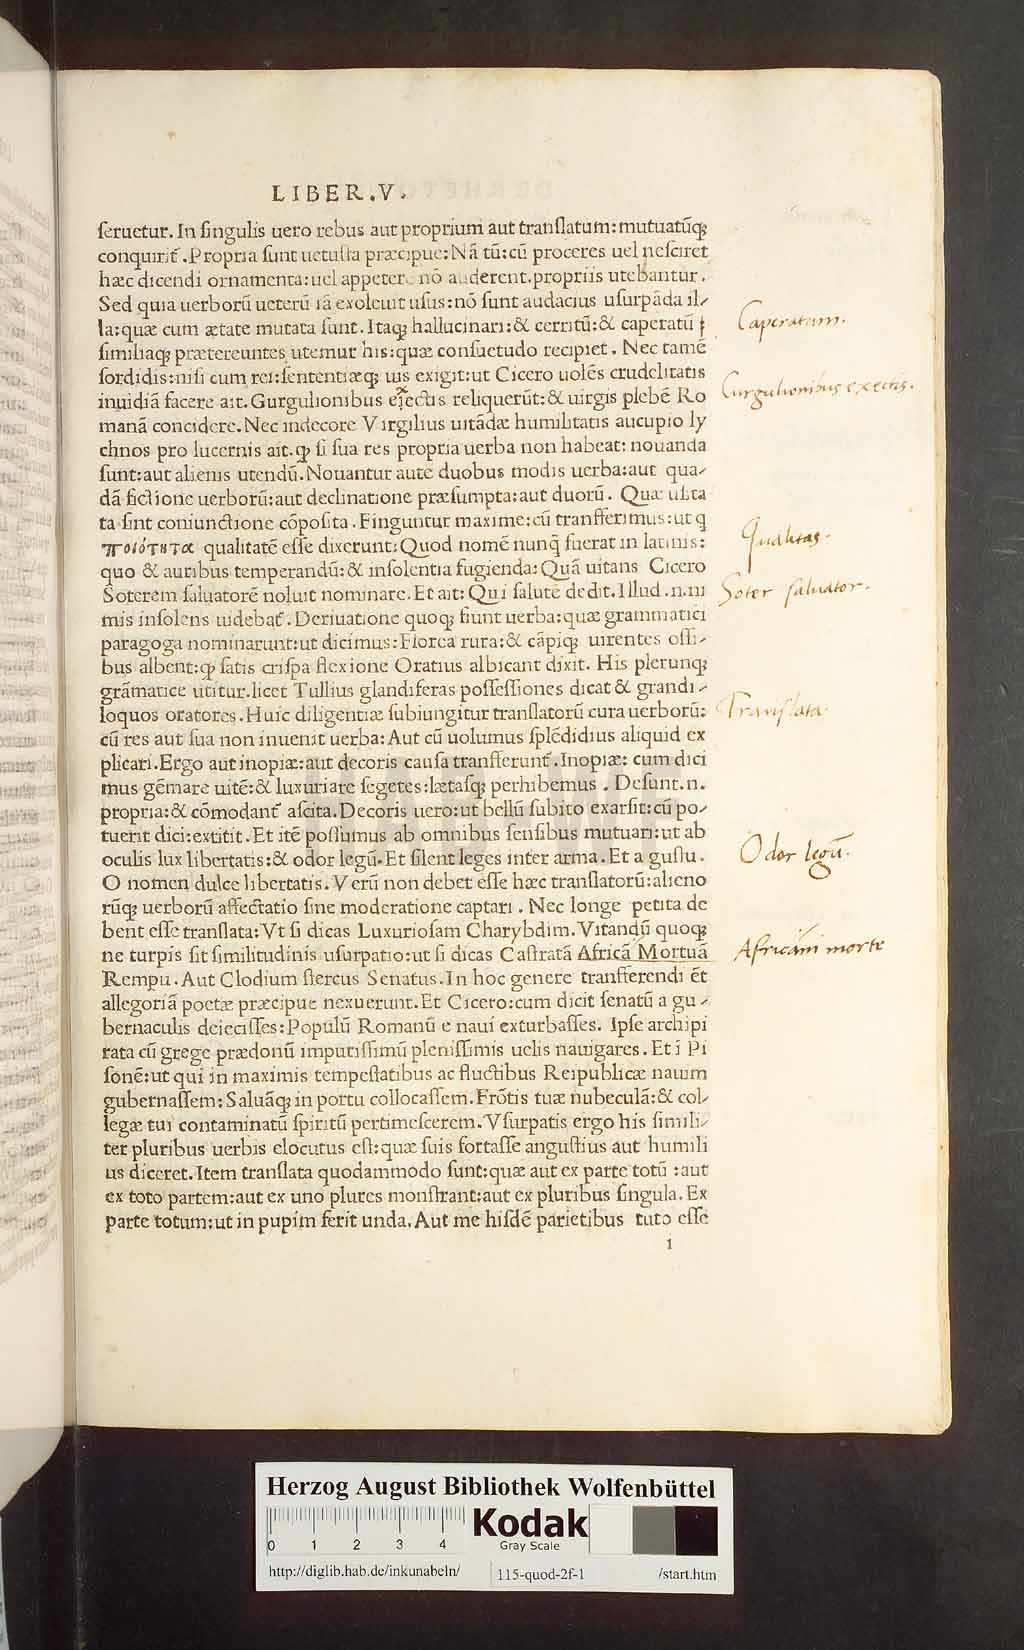 LIBER.V.
ſeruetur. In ſingulis uero rebus aut proprium aut tranſlatum: mutuatūq;
conquirit̄. Propria ſunt uetuſta præcipue: Nā tū: cū proceres uel neſciret
hæc dicendi ornamenta: uel appetere nō auderent. propriis utebantur.
Sed quia uerborū ueterū iā exoleuit uſus: nō ſunt audacius uſurpāda il-
la: quæ cum ætate mutata ſunt. Itaq; hallucinari: & cerritū: & caperatū
ſimiliaq; prætereuntes utemur his: quæ conſuetudo recipiet. Nec tamē
ſordidis: niſi cum rei: ſententiæq; uis exigit: ut Cicero uolēs crudelitatis
inuidiā facere ait. Gurgulionibus eiectis reliquerūt: & uirgis plebē Ro
manā concidere. Nec indecore Virgilius uitādæ humilitatis aucupio ly
chnos pro lucernis ait. ꝙ ſi ſua res propria uerba non habeat: nouanda
ſunt: aut alienis utendū. Nouantur autē duobus modis uerba: aut qua-
dā fictione uerborū: aut declinatione præſumpta: aut duorū. Quæ uſita
ta ſint coniunctione cōpoſita. Finguntur maxime: cū tranſferimus: ut q
ποιότητα qualitatē eſſe dixerunt: Quod nomē nunq̄ fuerat in latinis:
quo & auribus temperandū: & inſolentia fugienda: Quā uitans Cicero
Soterem ſaluatorē noluit nominare. Et ait: Qui ſalutē dedit. Illud .n. ni
mis inſolens uidebat̄. Deriuatione quoq; fiunt uerba: quæ grammatici
paragoga nominarunt: ut dicimus: Florea rura: & cāpiq; uirentes oſſi-
bus albent: ꝙ ſatis criſpa flexione Oratius albicant dixit. His plerunq;
grāmatice utitur. licet Tullius glandiferas poſſeſſiones dicat & grandi-
loquos oratores. Huic diligentiæ ſubiungitur tranſlatorū cura uerborū:
cū res aut ſua non inuenit uerba: Aut cū uolumus ſplēdidius aliquid ex
plicari. Ergo aut inopiæ: aut decoris cauſa tranſferunt̄. Inopiæ: cum dici
mus gēmare uitē: & luxuriare ſegetes: lætaſq; perhibemus. Deſunt .n.
propria: & cōmodant̄ aſcita. Decoris uero: ut bellū ſubito exarſit: cū po-
tuerit dici: extitit. Et itē poſſumus ab omnibus ſenſibus mutuari: ut ab
oculis lux libertatis: & odor legū. Et ſilent leges inter arma. Et a guſtu.
O nomen dulce libertatis. Verū non debet eſſe hæc tranſlatorū: alieno
rūq; uerborū affectatio ſine moderatione captari. Nec longe petita de
bent eſſe tranſlata: Vt ſi dicas Luxurioſam Charybdim. Vitandū quoq;
ne turpis ſit ſimilitudinis uſurpatio: ut ſi dicas Caſtratā Africā Mortuā
Rempu. Aut Clodium ſtercus Senatus. In hoc genere tranſferendi ēt
allegoriā poetæ præcipue nexuerunt. Et Cicero: cum dicit ſenatū a gu-
bernaculis deieciſſes: Populū Romanū e naui exturbaſſes. Ipſe archipi
rata cū grege prædonū impuriſſimū pleniſſimis uelis nauigares. Et ī Pi
ſonē: ut qui in maximis tempeſtatibus ac fluctibus Reipublicæ nauim
gubernaſſem: Saluāq; in portu collocaſſem. Frōtis tuæ nubeculā: & col-
legæ tui contaminatū ſpiritū pertimeſcerem. Vſurpatis ergo his ſimili-
ter pluribus uerbis elocutus eſt: quæ ſuis fortaſſe anguſtius aut humili
us diceret. Item tranſlata quodammodo ſunt: quæ aut ex parte totū: aut
ex toto partem: aut ex uno plures monſtrant: aut ex pluribus ſingula. Ex
parte totum: ut in pupim ferit unda. Aut me hiſdē parietibus tuto eſſe
i
Caperatum.
Gurgulionibus exectis.
Qualitas.
Soter saluator.
Translata.
Odor legū.
Africam morte
HAB-WF
Herzog August Bibliothek Wolfenbüttel
0 1 2 3 4
Kodak
Gray Scale
http://diglib.hab.de/inkunabeln/ 115-quod-2f-1 /start.htm